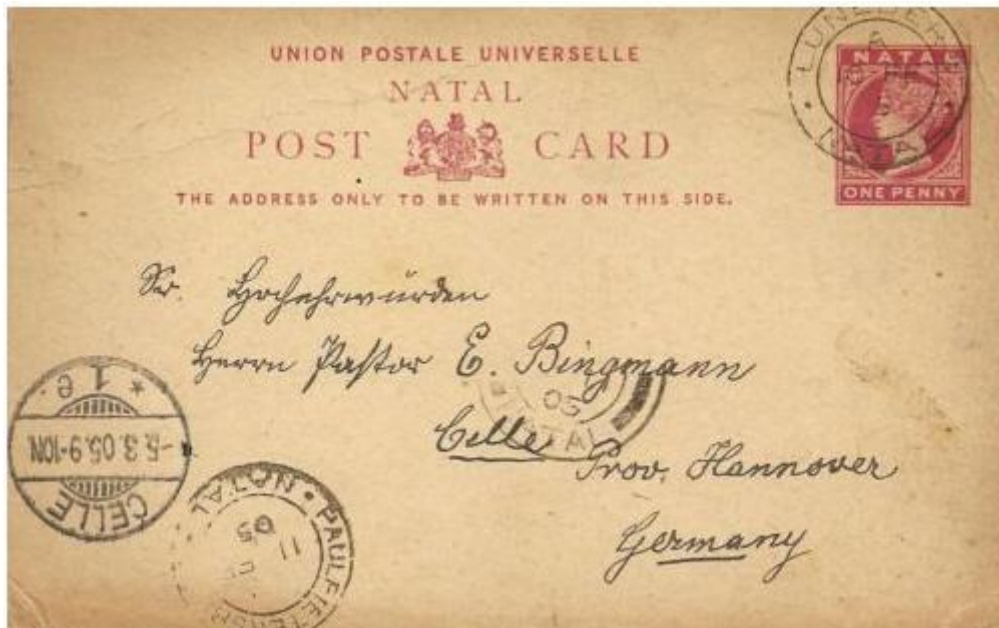 UNION POSTALE UNIVERSELLE
NATAL
POST CARD
THE ADDRESS ONLY TO BE WRITTEN ON THIS SIDE.
NATAL
ONE PENNY
NATAL
Sr. Hochehrwürden
Herrn Pastor E. Bingmann
Celle
Prov. Hannover
Germany
05
NATAL
* 1 e.
-5.3.05.9-10N
CELLE
NATAL
11
05